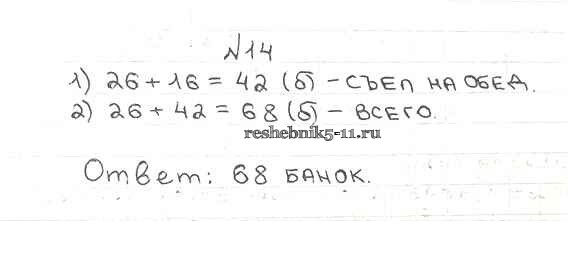 №14
1) 26 + 16 = 42 (б) - СЪЕЛ НА ОБЕД.
2) 26 + 42 = 68 (б) - ВСЕГО.
reshebnik5-11.ru
Ответ: 68 БАНОК.